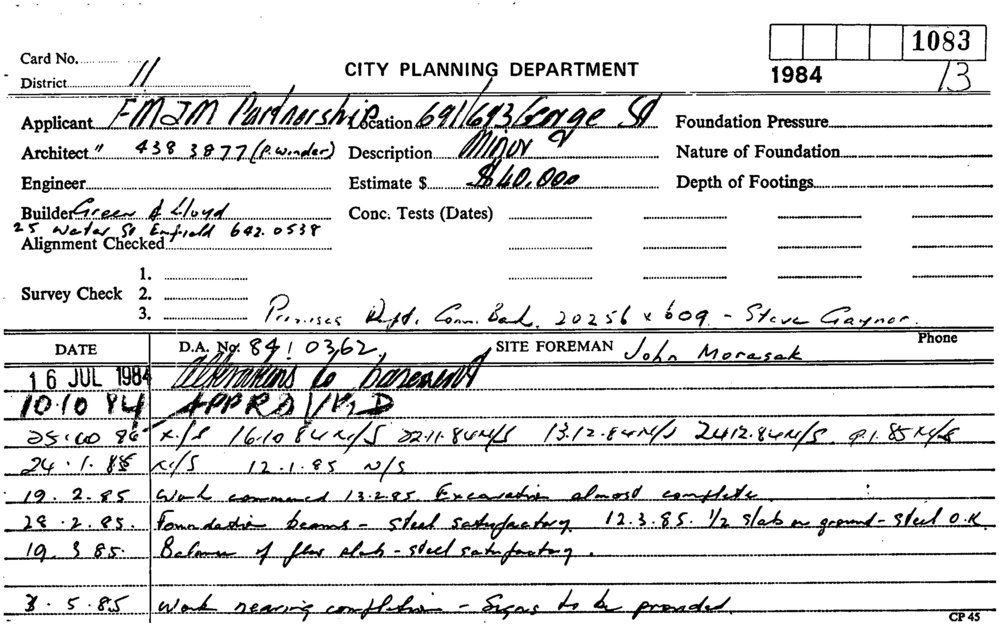 1083
Card No.
CITY PLANNING DEPARTMENT
1984 13
District 11
Applicant FMJM Partnership Location 691/693 George St Foundation Pressure
Architect " 438 3877 (P. Winder) Description Minor Nature of Foundation
Engineer Estimate $ $40,000 Depth of Footings
Builder Green & Lloyd Conc. Tests (Dates)
25 Water St Enfield 642.0538
Alignment Checked
1.
Survey Check 2.
3. Premises Dept. Comm. Bank. 20256 x 609 - Steve Gaynor.
DATE D.A. No. 84:0362, SITE FOREMAN John Morasak Phone
16 JUL 1984 Alterations to basement
10.10 84 APPRD
N/S 16.10 84 N/S 22.11.84 N/S 13.12.84 N/S 24.12.84 N/S 9.1.85 N/S
24.1.85 N/S 12.1.85 N/S
19.2.85 Work commenced 13.2.85. Excavation almost complete.
28.2.85. Foundation beams - steel satisfactory 12.3.85. 1/2 slab on ground - steel O.K.
19.3.85. Balance of floor slab - steel satisfactory.
3.5.85 Work nearing completion - Signs to be provided.
CP 45